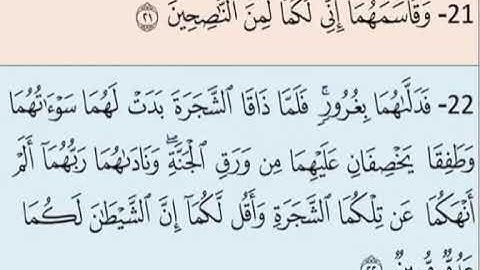 21- وَقَاسَمَهُمَا إِنِّي لَكُمَا لَمِنَ النَّاصِحِينَ ٢١
22- فَدَلَّاهُمَا بِغُرُورٍ ۚ فَلَمَّا ذَاقَا الشَّجَرَةَ بَدَتْ لَهُمَا سَوْءَاتُهُمَا
وَطَفِقَا يَخْصِفَانِ عَلَيْهِمَا مِن وَرَقِ الْجَنَّةِ ۖ وَنَادَاهُمَا رَبُّهُمَا أَلَمْ
أَنْهَكُمَا عَن تِلْكُمَا الشَّجَرَةِ وَأَقُل لَّكُمَا إِنَّ الشَّيْطَانَ لَكُمَا
عَدُوٌّ مُّبِينٌ ٢٢